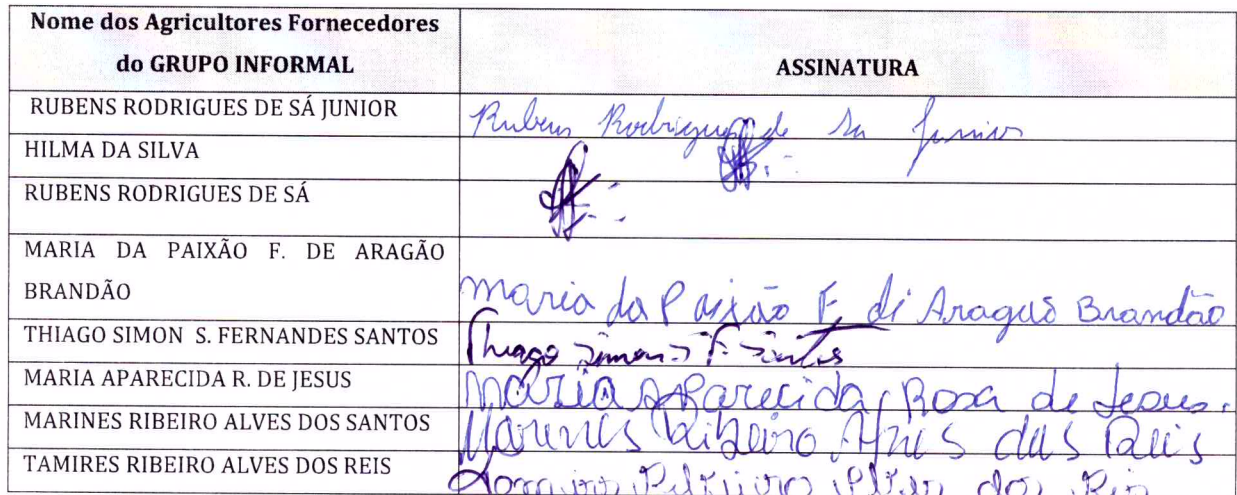 Nome dos Agricultores Fornecedores
do GRUPO INFORMAL
ASSINATURA
RUBENS RODRIGUES DE SÁ JUNIOR
Rubens Rodrigues de Sa Junior
HILMA DA SILVA
RUBENS RODRIGUES DE SÁ
MARIA DA PAIXÃO F. DE ARAGÃO
BRANDÃO
maria da Paixão F. di Aragão Brandão
THIAGO SIMON S. FERNANDES SANTOS
Thiago Simon S F. Santos
MARIA APARECIDA R. DE JESUS
Maria Aparecida Rosa de Jesus.
MARINES RIBEIRO ALVES DOS SANTOS
Marines Ribeiro Alves dos Reis
TAMIRES RIBEIRO ALVES DOS REIS